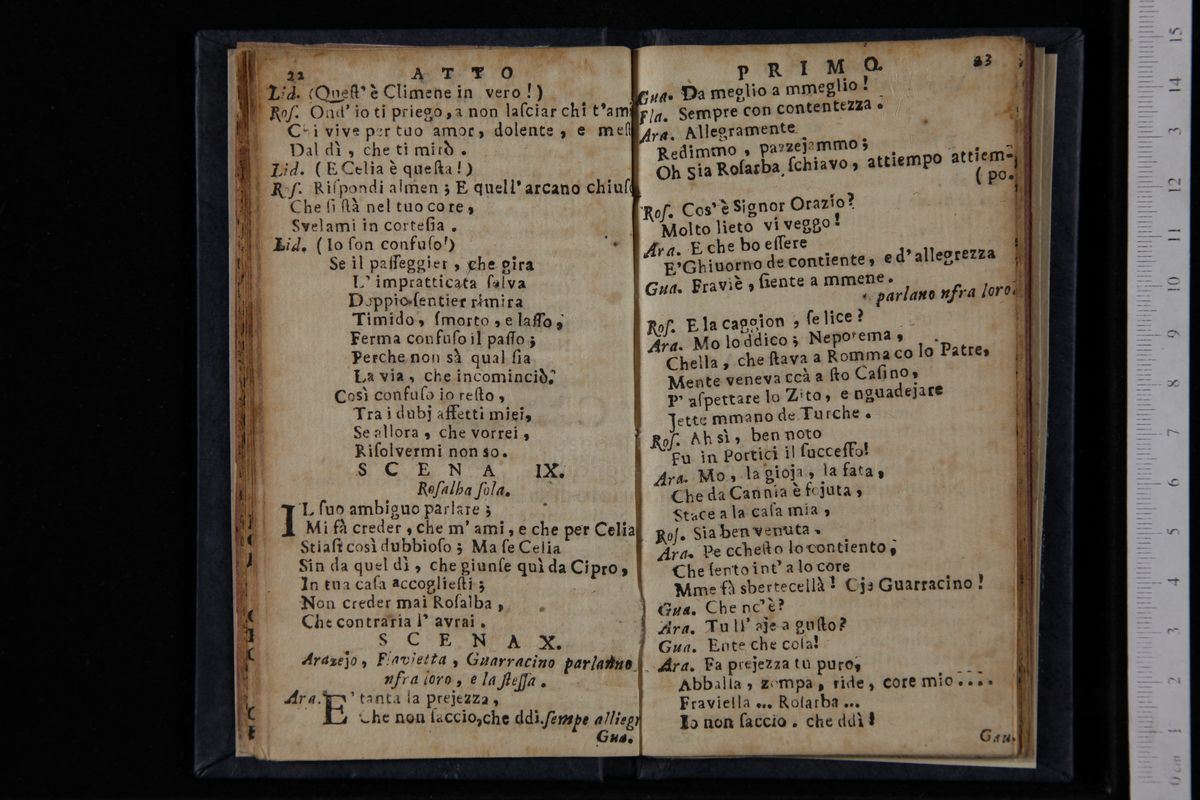 22 ATTO
Lid. (Quest' è Climene in vero!)
Ros. Ond' io ti priego, a non lasciar chi t'ami
Chi vive per tuo amor, dolente, e mest
Dal dì, che ti mirò.
Lid. (E Celia è questa!)
Ros. Rispondi almen; E quell' arcano chiuso
Che si stà nel tuo core,
Svelami in cortesia.
Lid. (Io son confuso!)
Se il passeggier, che gira
L' impratticata selva
Doppio sentier rimira
Timido, smorto, e lasso,
Ferma confuso il passo;
Perche non sà qual sia
La via, che incominciò.
Così confuso io resto,
Tra i dubj affetti miei,
Se allora, che vorrei,
Risolvermi non so.
SCENA IX.
Rosalba sola.
IL suo ambiguo parlare;
Mi fà creder, che m' ami, e che per Celia
Stiasi così dubbioso; Ma se Celia
Sin da quel dì, che giunse quì da Cipro,
In tua casa accogliesti;
Non creder mai Rosalba,
Che contraria l' avrai.
SCENA X.
Arazejo, Flavietta, Guarracino parlanno
nfra loro, e la stessa.
Ara. E' tanta la prejezza,
Che non saccio, che ddì. sempe allegr
Gua.
PRIMO. 23
Gua. Da meglio a mmeglio!
Fla. Sempre con contentezza.
Ara. Allegramente
Redimmo, pazzejammo;
Oh Sia Rosarba schiavo, attiempo attiem-
(po.
Ros. Cos' è Signor Orazio?
Molto lieto vi veggo!
Ara. E che bo essere
E' Ghiuorno de contiente, e d' allegrezza
Gua. Fraviè, siente a mmene.
parlano nfra loro.
Ros. E la caggion, se lice?
Ara. Mo lo ddico; Neporema,
Chella, che stava a Romma co lo Patre,
Mente veneva ccà a sto Casino,
P' aspettare lo Zito, e nguadejare
Jette mmano de Turche.
Ros. Ah sì, ben noto
Fu in Portici il successo!
Ara. Mo, la gioja, la fata,
Che da Cannia è fojuta,
Stace a la casa mia,
Ros. Sia ben venuta.
Ara. Pe cchesto lo contiento,
Che sento int' a lo core
Mme fà sbertecellà! Oje Guarracino!
Gua. Che nc' è?
Ara. Tu ll' aje a gusto?
Gua. Ente che cosa!
Ara. Fa prejezza tu puro,
Abballa, zompa, ride, core mio....
Fraviella ... Rosarba ...
Io non saccio. che ddì!
Gau.